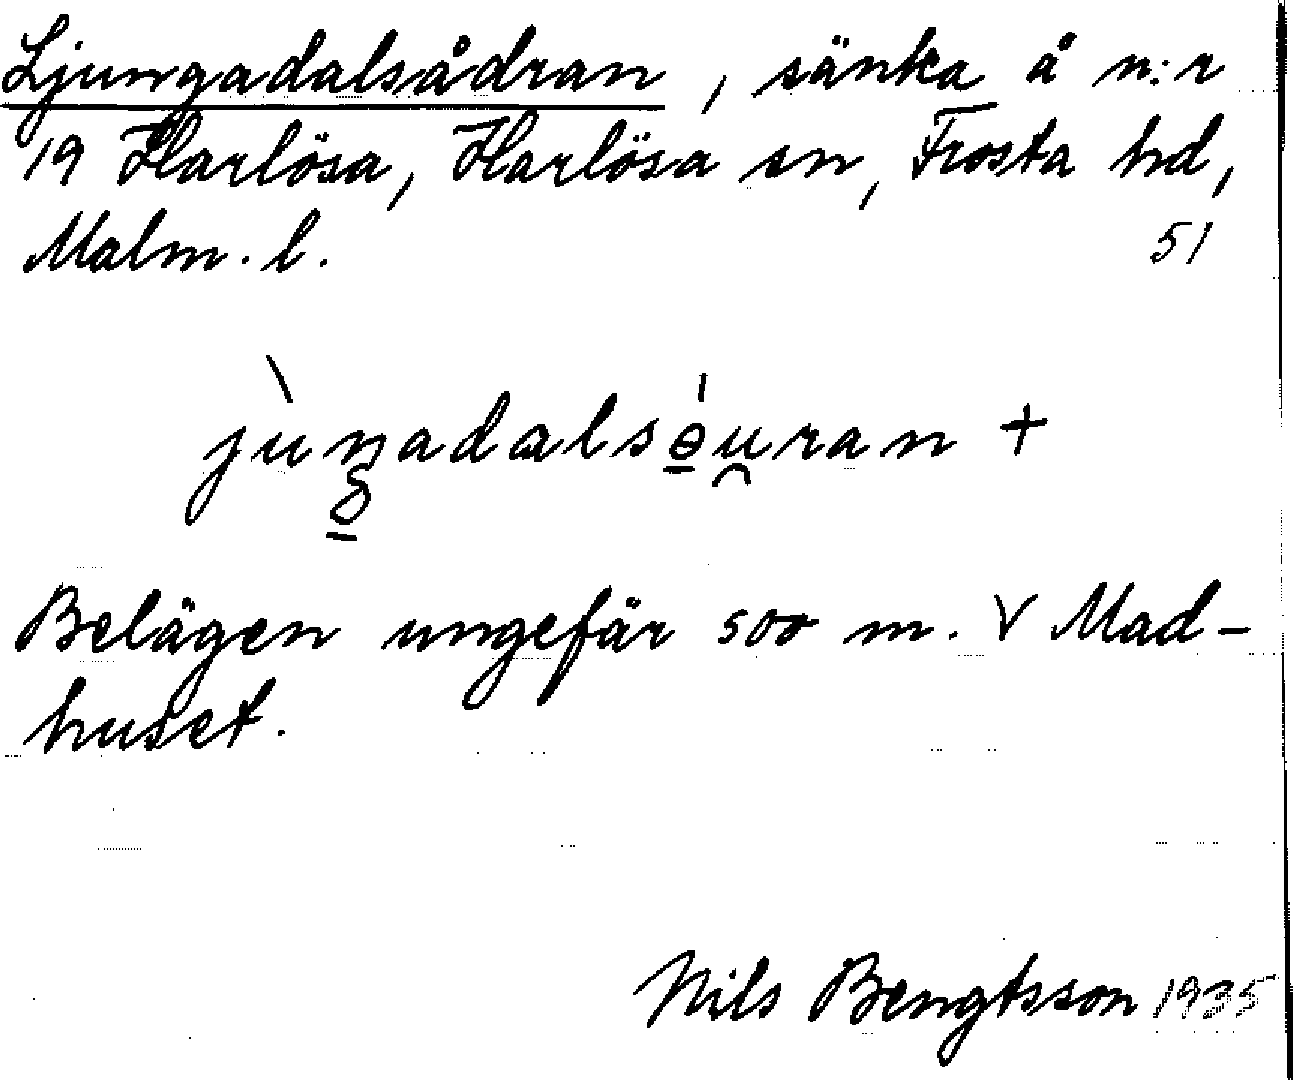 Ljungadalsådran, sänka å n:r
19 Harlösa, Harlösa sn, Frosta hd,
Malm. l. 51
jùŋadalsɵ́u̯ran +
g
Belägen ungefär 500 m. V Mad-
huset.
Nils Bengtsson 1935